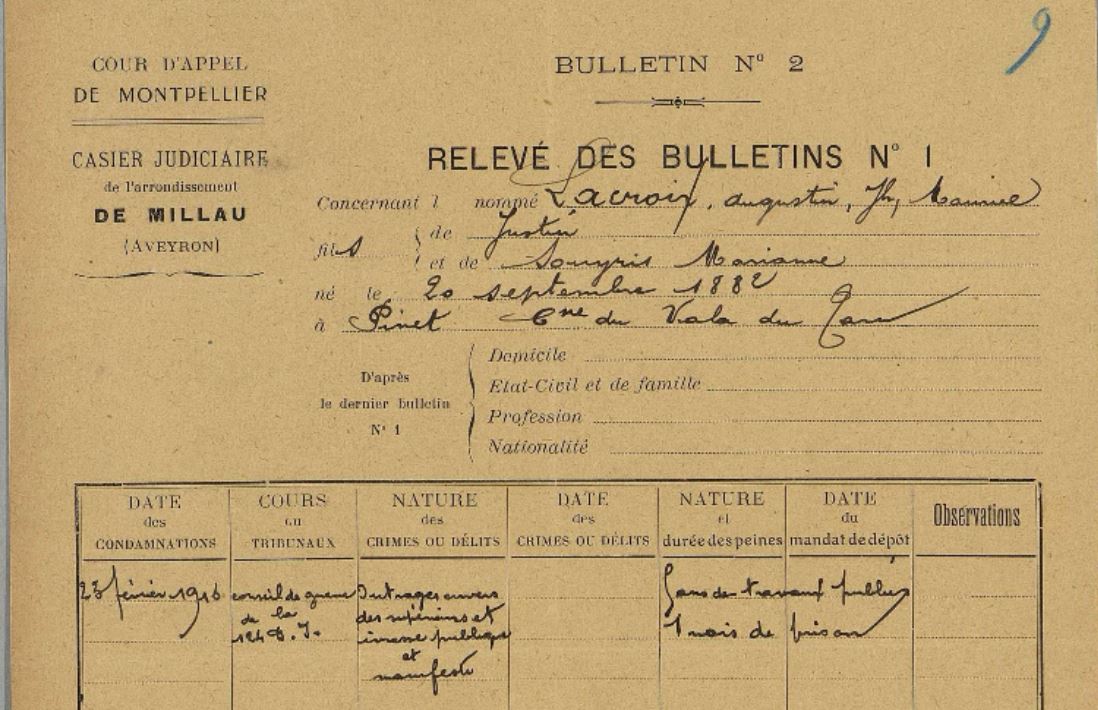 9
COUR D'APPEL
DE MONTPELLIER
CASIER JUDICIAIRE
de l'arrondissement
DE MILLAU
(AVEYRON)
BULLETIN N° 2
RELEVÉ DES BULLETINS N° 1
Concernant l nommé Lacroix, augustin, Jh,
fils de Justin
et de Souyris Marianne
né le 20 septembre 1882
à Pinet Cne du Viala du Tarn
D'après
le dernier bulletin
N° 1
Domicile
Etat-Civil et de famille
Profession
Nationalité
DATE
des
CONDAMNATIONS
COURS
ou
TRIBUNAUX
NATURE
des
CRIMES OU DÉLITS
DATE
des
CRIMES OU DÉLITS
NATURE
et
durée des peines
DATE
du
mandat de dépôt
Observations
23 février 1916
conseil de guerre
de la
124 D. I.
Outrages envers
des supérieurs et
ivresse publique
et
manifeste
ans de travaux publics
1 mois de prison